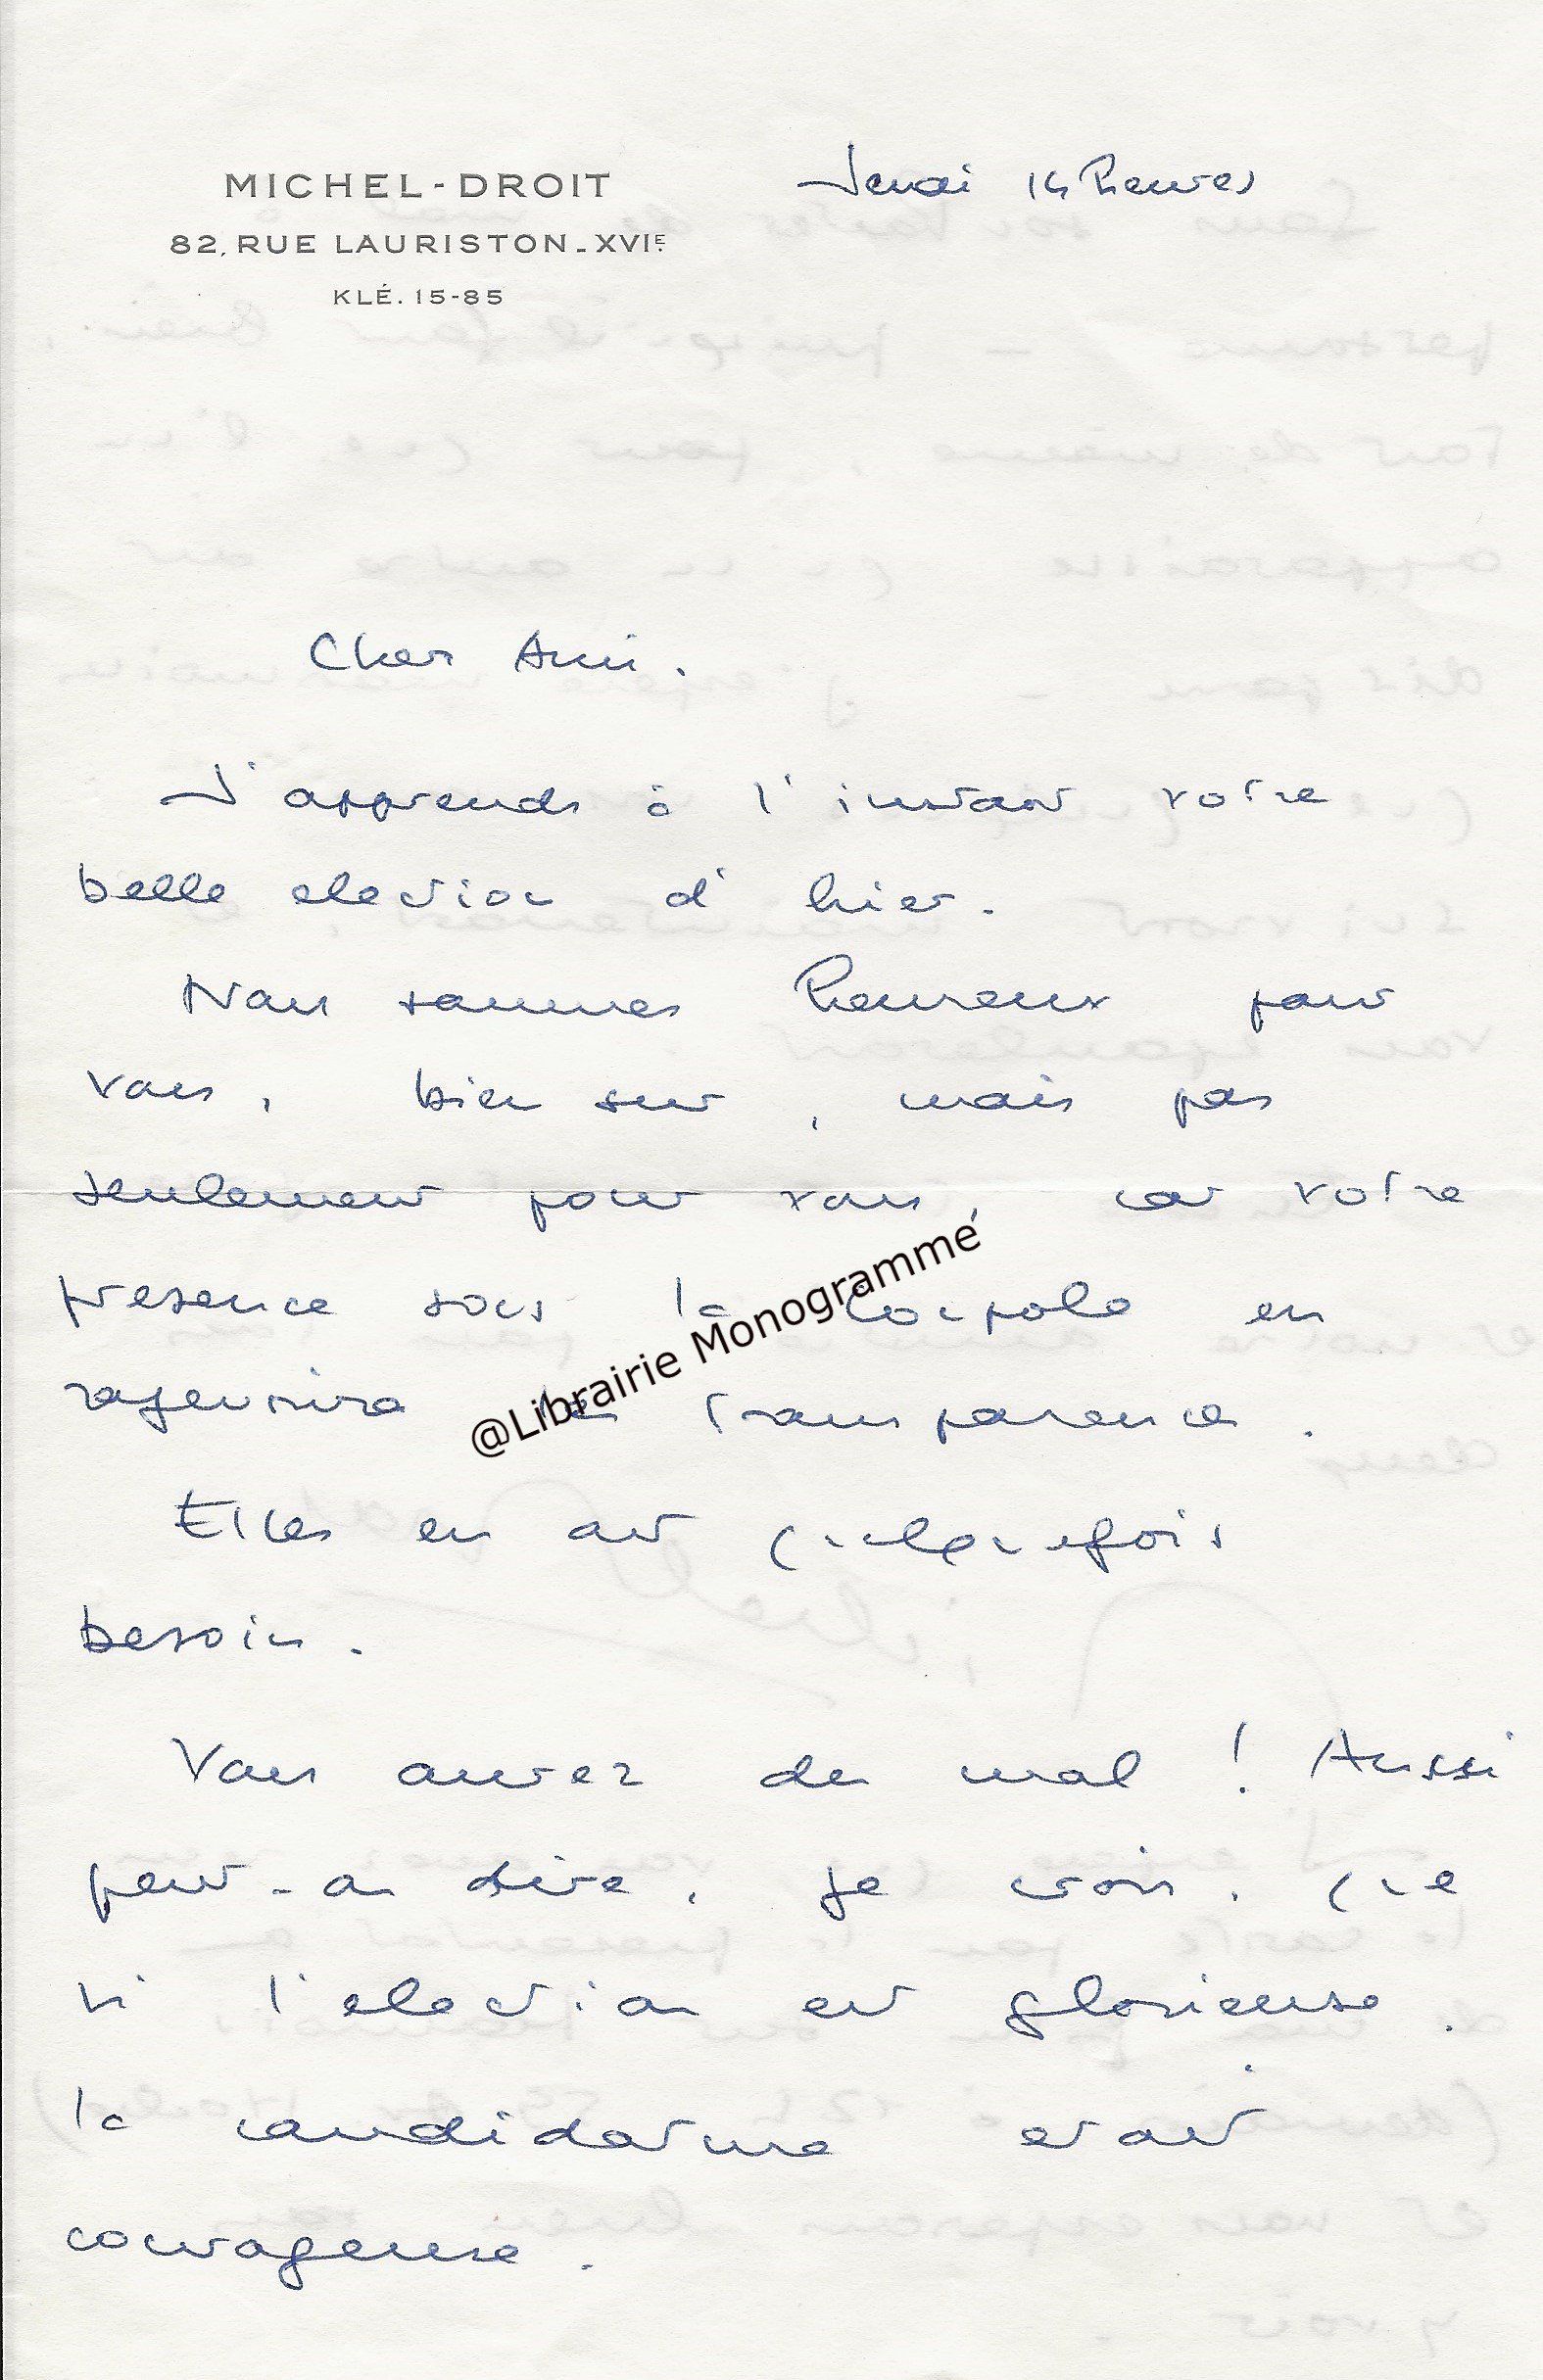 MICHEL-DROIT
82, RUE LAURISTON - XVIE
KLÉ. 15-85
Jeudi 14 heures
Cher Ami.
J'apprends à l'instant votre
belle election d'hier.
Nous sommes heureux pour
vous, bien sur, mais pas
seulement pour vous, car votre
presence sous la Coupole en
rajeunira les transparences.
Elles en ont quelquefois
besoin.
Vous aurez du mal ! Aussi
peut-on dire, je crois, que
si l'election est glorieuse,
la candidature etait
courageuse.
@Librairie Monogrammé